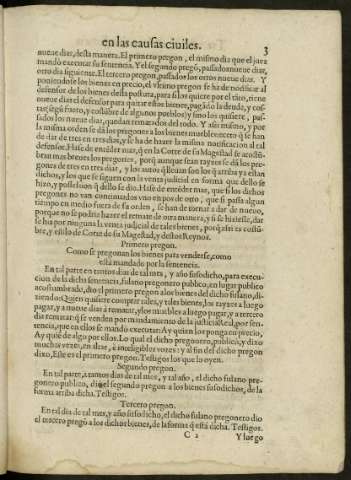 en las causas civiles. 3
nueve dias, desta manera. El primero pregon, el mismo dia que el juez
mandò executar su sentencia. Y el segundo pregõ, passados nueve dias,
otro dia siguiente. El tercero pregon, passados los otros nueve dias. Y
poniendose los bienes en precio, el vltimo pregon se ha de notificar al
defensor de los bienes desta postura, para si los quiere por el tãto, tiene
nueve dias el defensor para quitar estos bienes, pagãdo la deuda, y cos-
tas (segũ fuero, y costũbre de algunos pueblos) y sino los quisiere, pas-
sados los nueve dias, quedan rematados del todo. Y assi mismo, y por
la misma orden se dã los pregones a los bienes muebles, excepto q̃ se han
de dar de tres en tres dias, y se ha de hazer la misma notificacion al tal
defensor. Hase de entẽder mas, q̃ en la Corte de su Magestad se acostũ-
bran mas breves los pregones, porq̃ aunque sean rayzes se dã los pre-
gones de tres en tres dias, y los autos q̃ llevan son los q̃ arriba ya estan
dichos, y los que se siguen con la venta judicial en forma que dello se
hizo, y possession q̃ dello se dio. Hase de entẽder mas, que si los dichos
pregones no van continuados vno en pos de otro, que si passa algun
tiempo en medio fuera de su orden, se han de tornar a dar de nuevo,
porque no se podria hazer el remate de otra manera, y si se hiziesse, dar
se hia por ninguna la venta judicial de tales bienes, porq̃ assi es costũ-
bre, y estilo de Corte de su Magestad, y destos Reynos.
Primero pregon.
Como se pregonan los bienes para venderse, como
està mandado por la sentencia.
En tal parte en tantos dias de tal mes, y año susodicho, para execu-
cion de la dicha sentencia, fulano pregonero publico, en lugar publico
acostumbrado, dio el primero pregon a los bienes del dicho fulano, di-
ziendo: Quien quisiere comprar tales, y tales bienes, los rayzes a luego
pagar, y a nueve dias à rematar, y los muebles a luego pagar, y a tercero
dia rematar: q̃ se venden por mandamiento de la justicia Real, por sen-
tencia, que en ellos se mandò executar: Ay quien los ponga en precio,
Ay quiẽ de algo por ellos. Lo qual el dicho pregonero, publicò, y dixo
muchas vezes, en altas, è inteligibles vozes: y al fin del dicho pregon
dixo, Este es el primero pregon. Testigos los que lo oyen.
Segundo pregon.
En tal parte, à tantos dias de tal mes, y tal año, el dicho fulano pre-
gonero publico, dio el segundo pregon a los bienes susodichos, de la
forma arriba dicha. Testigos.
Tercero pregon.
En tal dia de tal mes, y año susodicho, el dicho fulano pregonero dio
el tercero pregõ a los dichos bienes, de la forma q̃ està dicha. Testigos.
C 2 Y luego